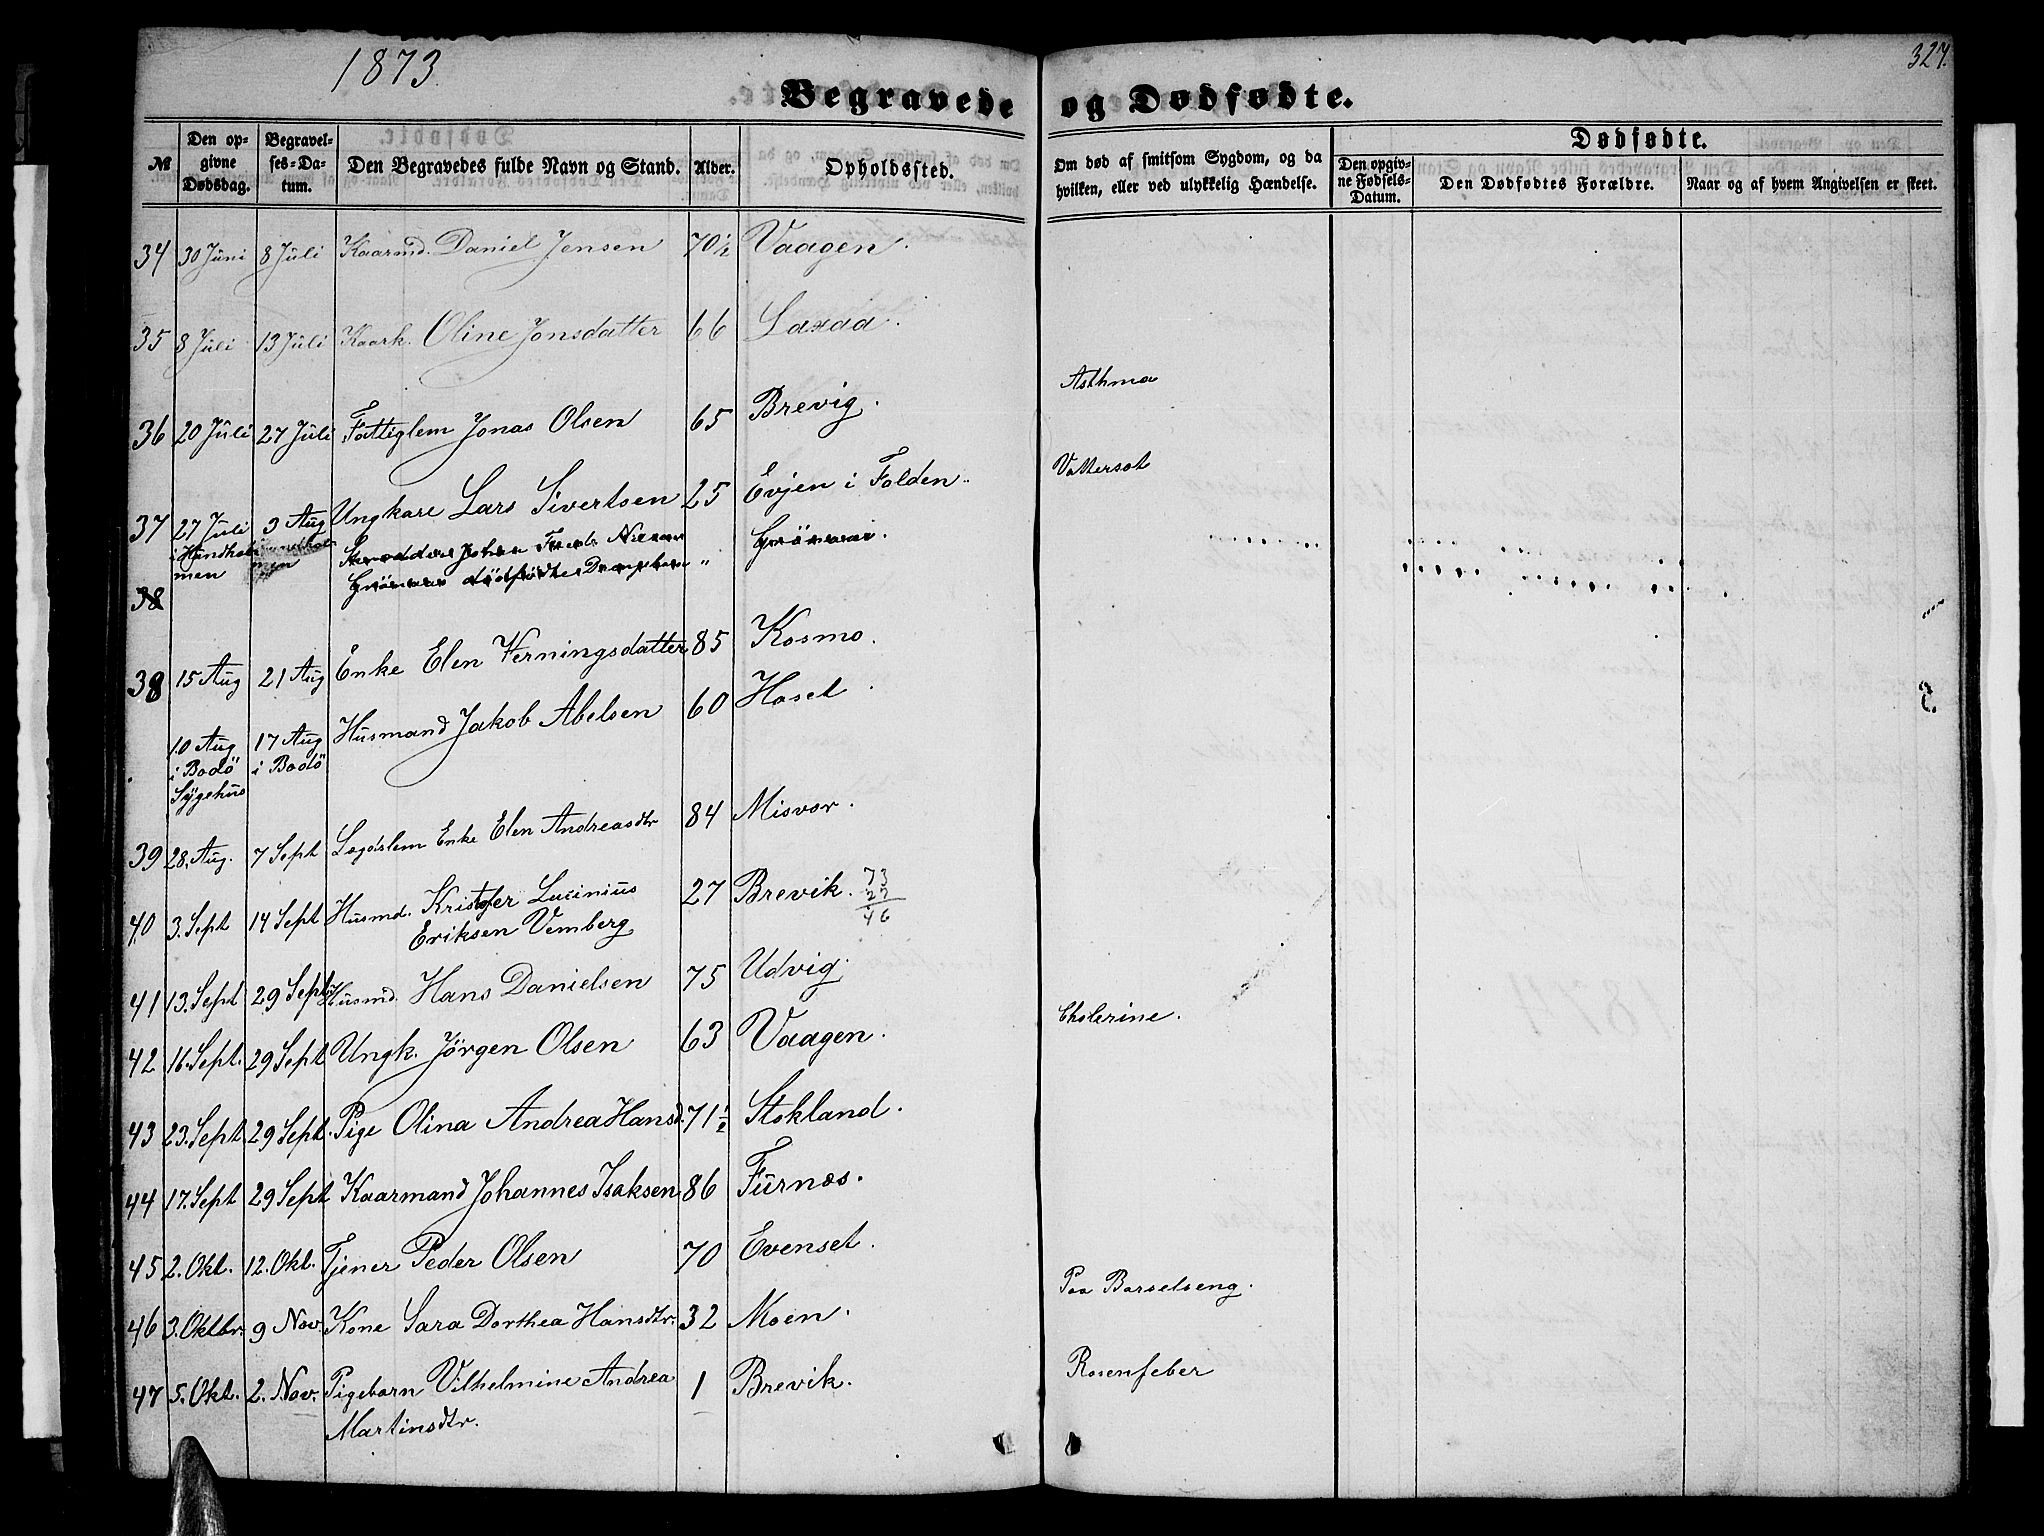 1873.
327.
Begravede og Dødfødte.
№
Den opgivne Dødsdag.
Begravelses-Datum.
Den Begravedes fulde Navn og Stand.
Alder.
Opholdssted.
Om død af smitsom Sygdom, og da hvilken, eller ved ulykkelig Hændelse.
Dødfødte.
Den opgivne Fødsels-Datum.
Den Dødfødtes Forældre.
Naar og af hvem Angivelsen er skeet.
34 30 Juni 8 Juli Kaarmd. Daniel Jensen 70½ Vaagen.
35 8 Juli 13 Juli Kaark. Oline Jonsdatter 66 Laxaa.
36 20 Juli 27 Juli Fattiglem Jonas Olsen 65 Brevig. Asthma
37 27 Juli 3 Aug Ungkare Lars Sivertsen 25 Evjen i Folden. Vattersot
i Hundhol
men
38
38 15 Aug 21 Aug Enke Elen Verningsdatter 85 Kosmo.
10 Aug 17 Aug Husmand Jakob Abelsen 60 Haset.
i Bodö i Bodö
Sygehus
39 28. Aug. 7 Sept Lægdslem Enke Elen Andreasdtr 84 Misvær.
40 3. Sept 14 Sept Husmd. Kristofer Lucinius 27 Brevik. 73
27
46
Eriksen Vemberg
41 13. Sept 29 Sept. Husmd. Hans Danielsen 75 Udvig.
42 16. Sept. 29 Sept Ungk. Jörgen Olsen 63 Vaagen. Cholerine.
43 23. Sept 29 Sept. Pige Olina Andrea Hansd. 71½ Stokland.
44 17. Sept 29 Sept Kaarmand Johannes Isaksen 86 Furnæs.
45 2. Okt. 12. Okt. Tjener Peder Olsen 70 Evenset.
46 3. Oktbr. 9 Nov. Kone Sara Dorthea Hansdtr. 32 Moen. Paa Barselseng.
47 5. Okt. 2. Nov. Pigebarn Vilhelmine Andrea 1 Brevik. Rosenfeber
Martinsdtr.